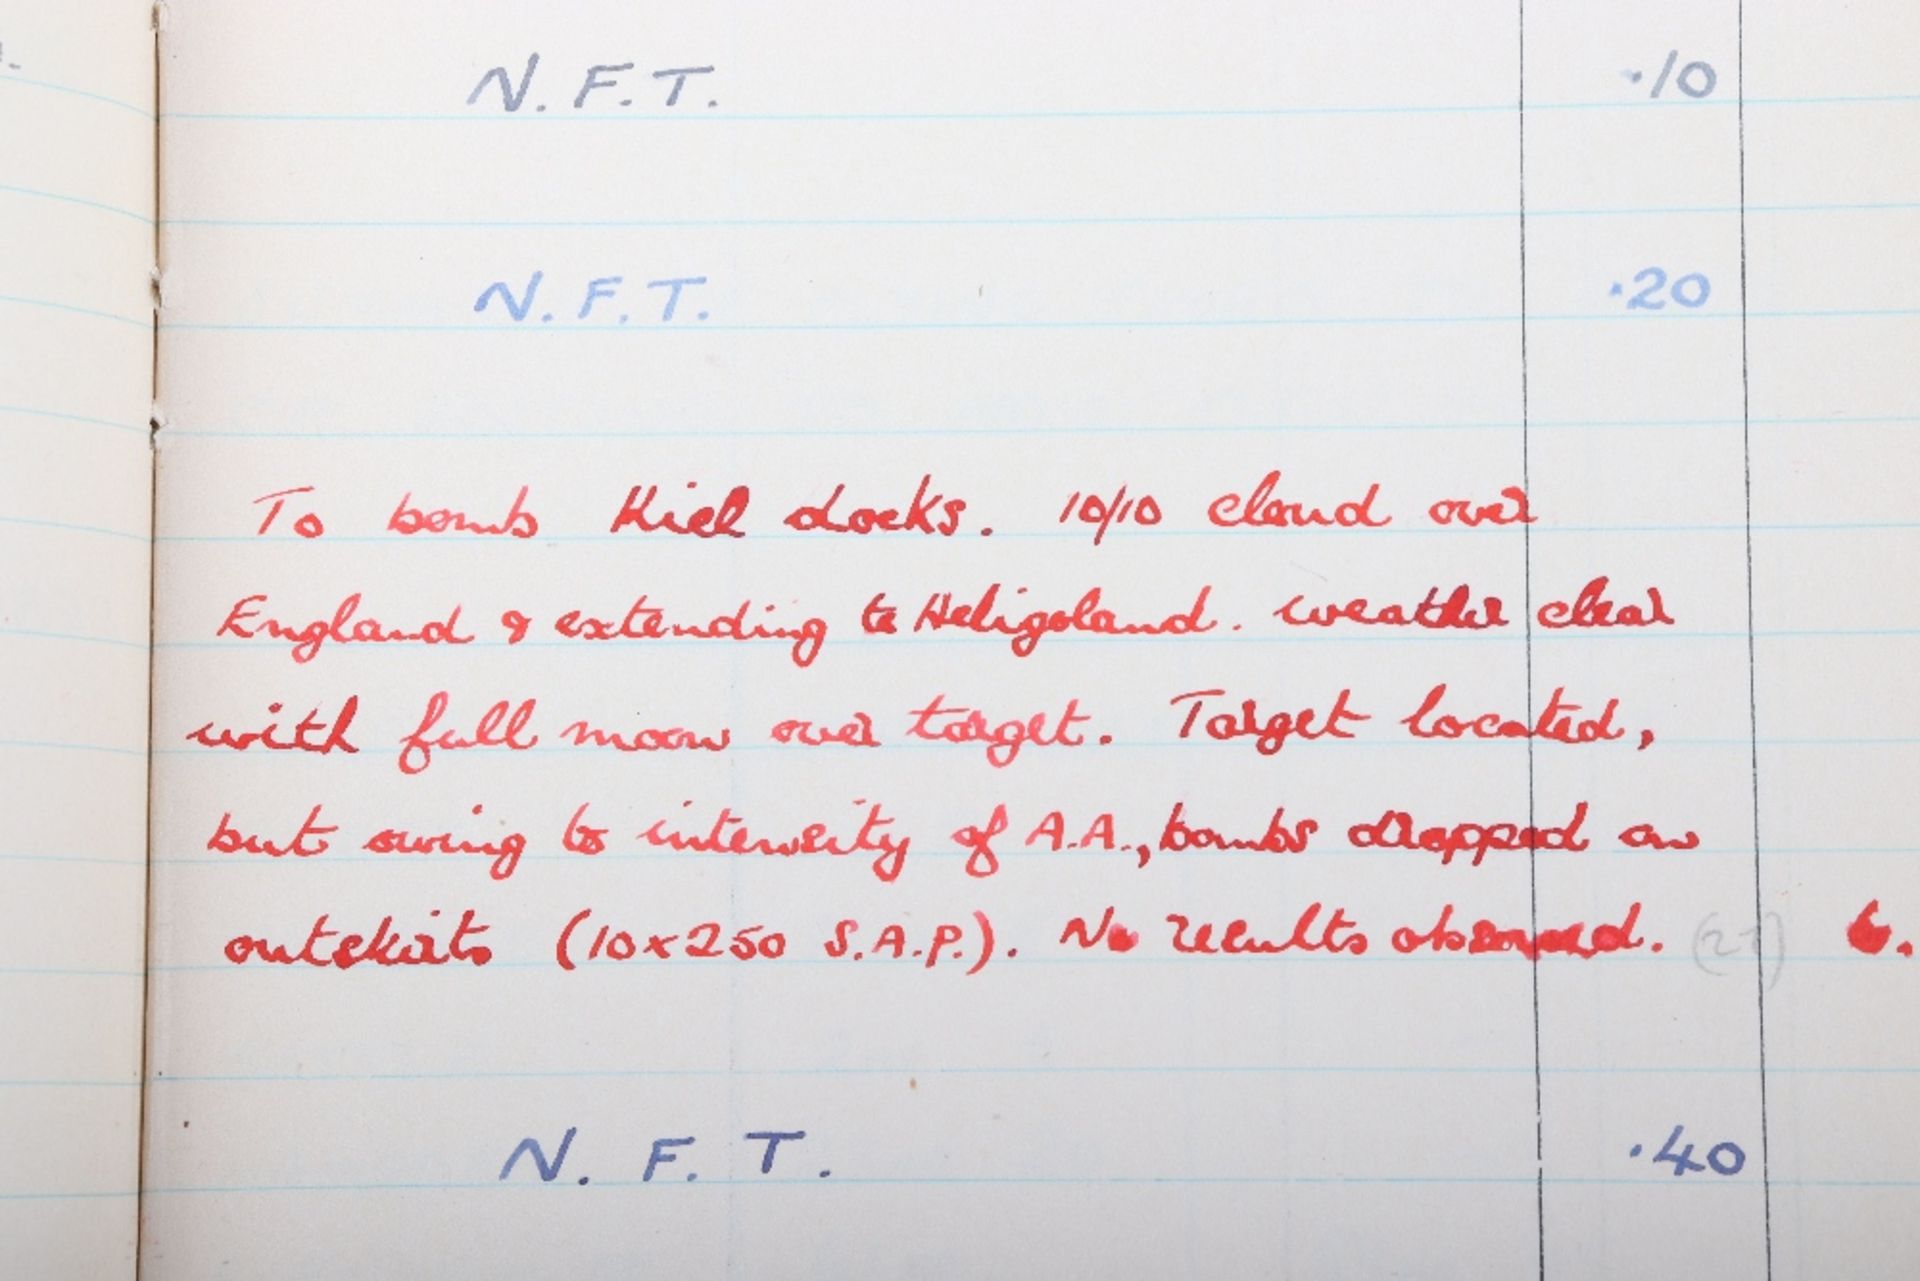 N.F.T. ·10
N.F.T. ·20
To bomb Kiel docks. 10/10 cloud over
England & extending to Heligoland. weather clear
with full moon over target. Target located,
but owing to intensity of A.A., bombs dropped on
outskirts (10x250 S.A.P.). No results observed. 6.
N. F. T. ·40